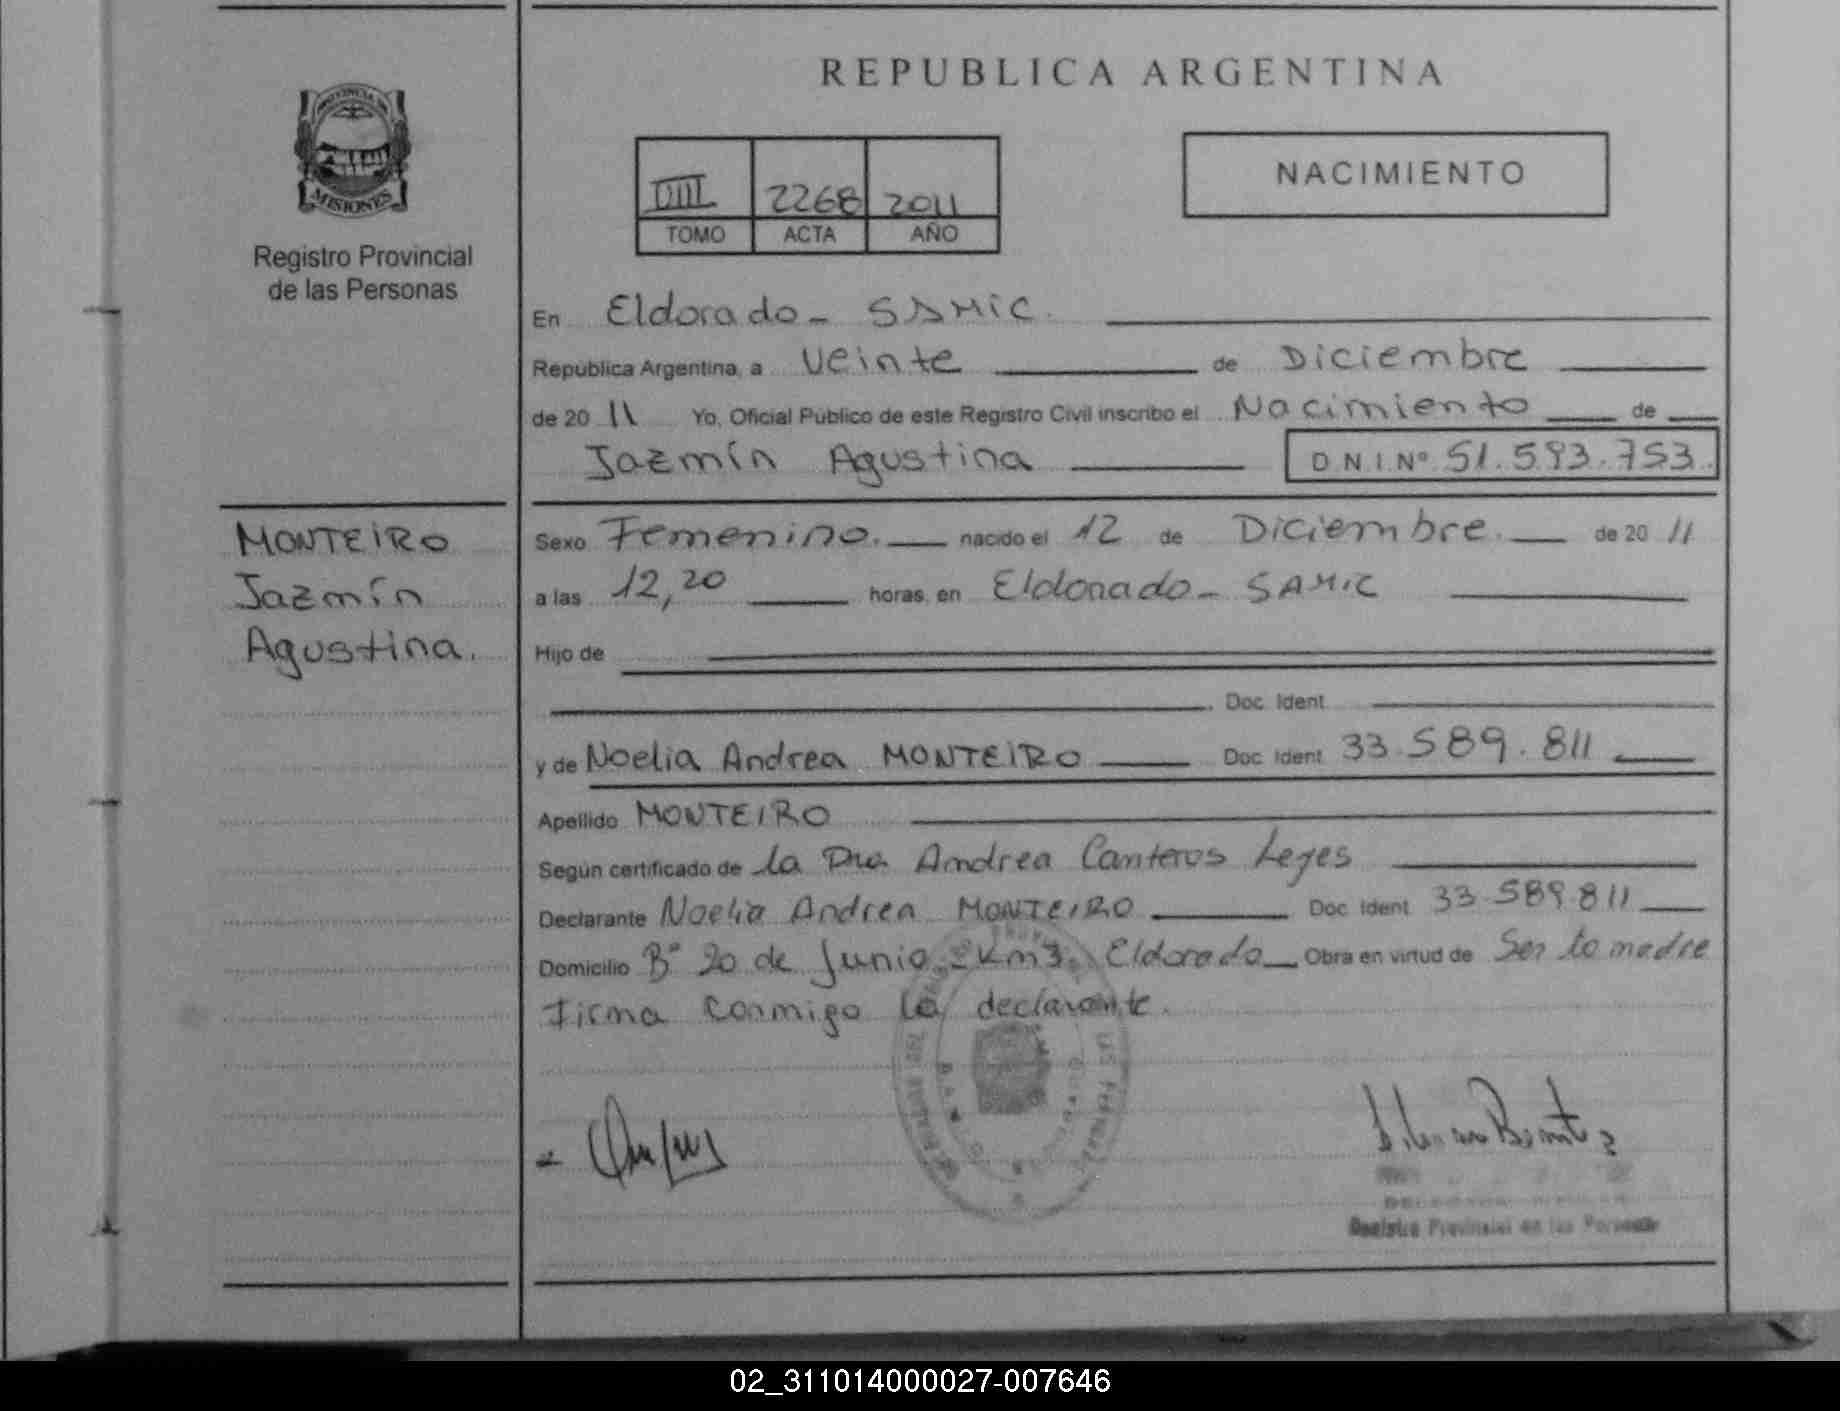 REPUBLICA ARGENTINA
PROVINCIA DE
MISIONES
Registro Provincial
de las Personas
2268 2011
TOMO ACTA AÑO
NACIMIENTO
En Eldorado - SAMIC.
Republica Argentina, a Veinte de Diciembre
de 2011 Yo, Oficial Publico de este Registro Civil inscribo el Nacimiento de
Jazmín Agustina DNI Nº 51.593.753.
MONTEIRO
Jazmín
Agustina.
Sexo Femenino. nacido el 12 de Diciembre. de 2011
a las 12,20 horas, en Eldorado - SAMIC
Hijo de
Doc. Ident.
y de Noelia Andrea MONTEIRO Doc. Ident. 33.589.811
Apellido MONTEIRO
Según certificado de la Dra Andrea Canteros Leyes
Declarante Noelia Andrea MONTEIRO Doc. Ident. 33.589.811
Domicilio Bº 20 de Junio - Km3. Eldorado Obra en virtud de Ser la madre
Firma conmigo la declarante.
Registro Provincial de las Personas
02_311014000027-007646